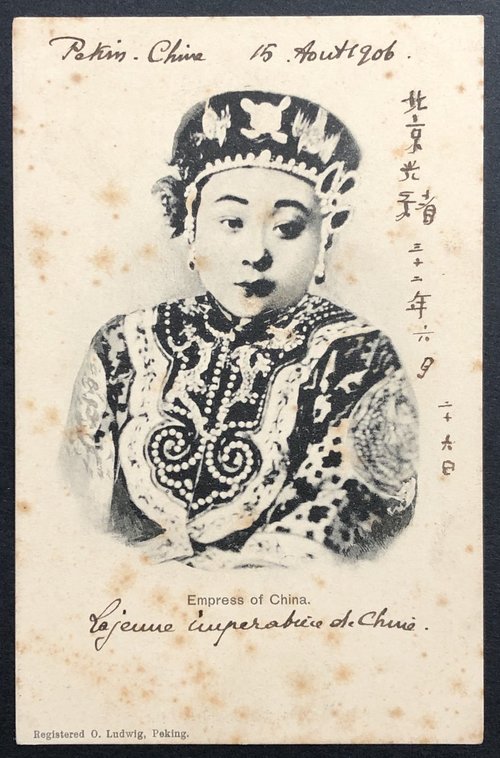 Pekin - Chine 15 Aout 1906.
北京光緒三十二年六月
二十六日
Empress of China.
La jeune imperatrice de Chine.
Registered O. Ludwig, Peking.